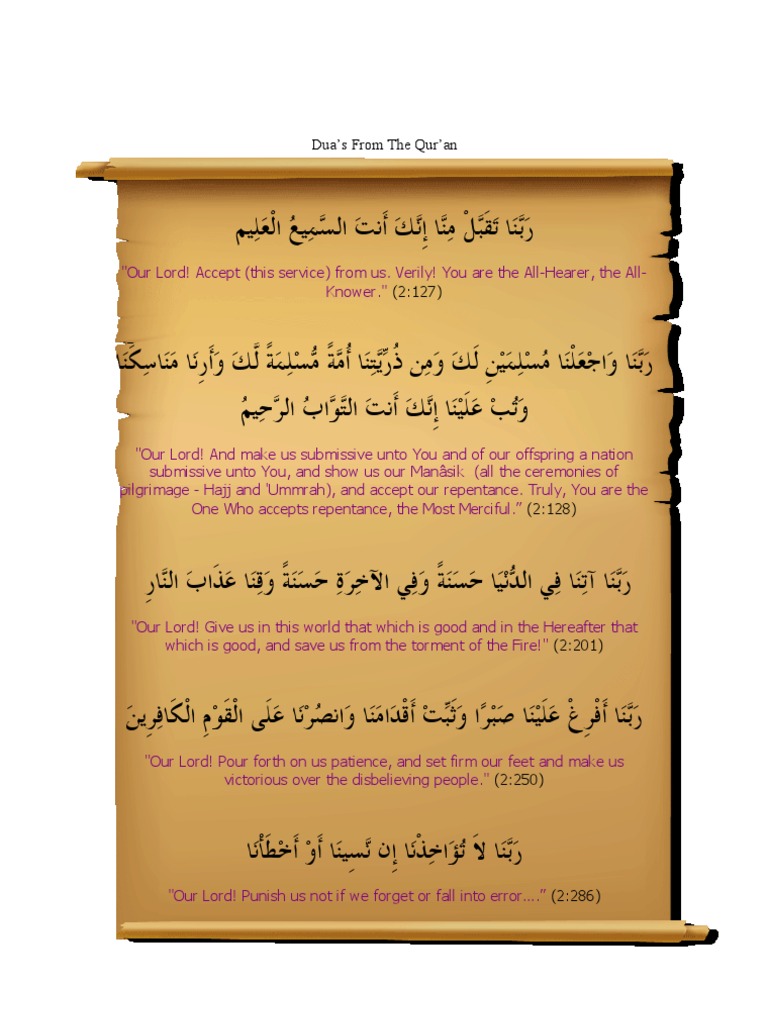 Dua's From The Qur'an
رَبَّنَا تَقَبَّلْ مِنَّا إِنَّكَ أَنتَ السَّمِيعُ الْعَلِيم
"Our Lord! Accept (this service) from us. Verily! You are the All-Hearer, the All-
Knower." (2:127)
رَبَّنَا وَاجْعَلْنَا مُسْلِمَيْنِ لَكَ وَمِن ذُرِّيَّتِنَا أُمَّةً مُّسْلِمَةً لَّكَ وَأَرِنَا مَنَاسِكَنَا
وَتُبْ عَلَيْنَا إِنَّكَ أَنتَ التَّوَّابُ الرَّحِيمُ
"Our Lord! And make us submissive unto You and of our offspring a nation
submissive unto You, and show us our Manâsik (all the ceremonies of
pilgrimage - Hajj and 'Ummrah), and accept our repentance. Truly, You are the
One Who accepts repentance, the Most Merciful.” (2:128)
رَبَّنَا آتِنَا فِي الدُّنْيَا حَسَنَةً وَفِي الآخِرَةِ حَسَنَةً وَقِنَا عَذَابَ النَّارِ
"Our Lord! Give us in this world that which is good and in the Hereafter that
which is good, and save us from the torment of the Fire!" (2:201)
رَبَّنَا أَفْرِغْ عَلَيْنَا صَبْرًا وَثَبِّتْ أَقْدَامَنَا وَانصُرْنَا عَلَى الْقَوْمِ الْكَافِرِينَ
"Our Lord! Pour forth on us patience, and set firm our feet and make us
victorious over the disbelieving people." (2:250)
رَبَّنَا لاَ تُؤَاخِذْنَا إِن نَّسِينَا أَوْ أَخْطَأْنَا
"Our Lord! Punish us not if we forget or fall into error....” (2:286)